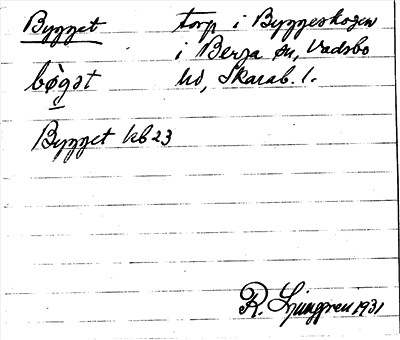 Bygget torp i Byggeskogen
i Berga sn, Vadsbo
bø̀gət hd, Skarab. l.
Bygget kb 23
R. Ljunggren 1931